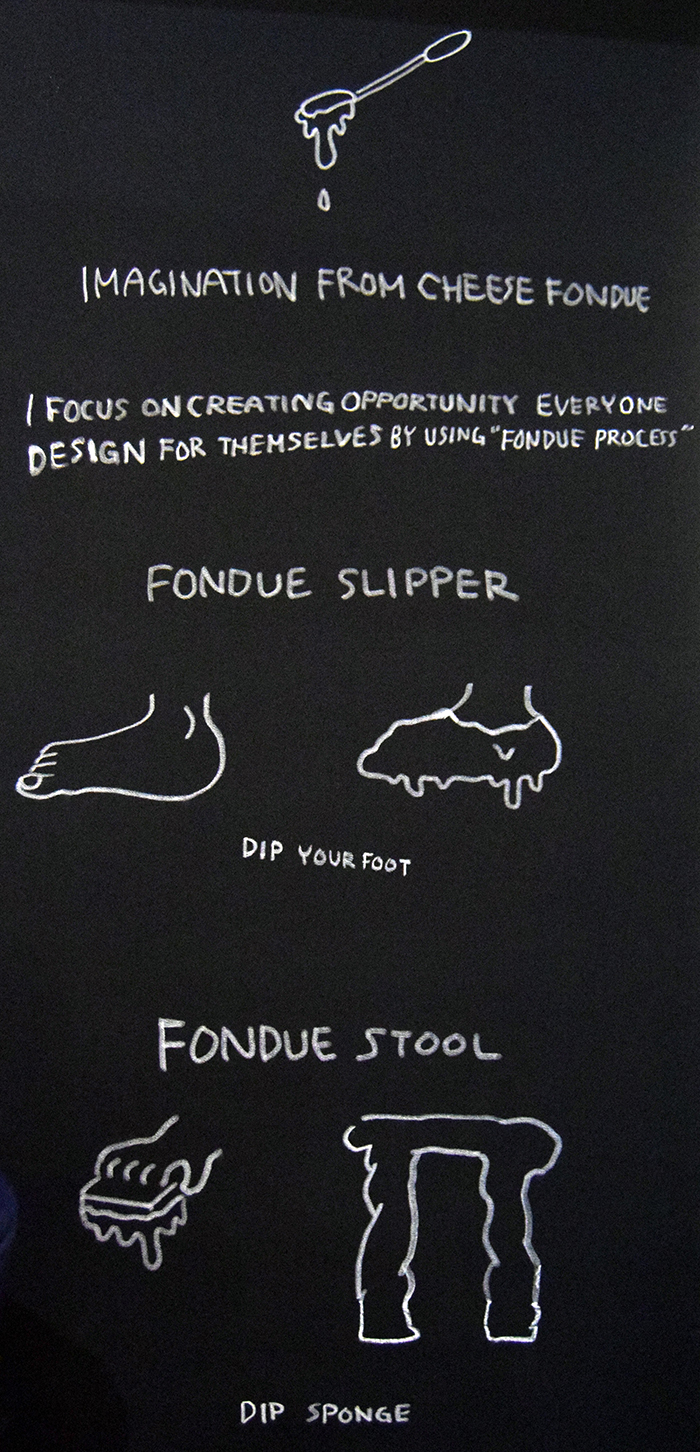 IMAGINATION FROM CHEESE FONDUE
I FOCUS ON CREATING OPPORTUNITY EVERYONE
DESIGN FOR THEMSELVES BY USING "FONDUE PROCESS"
FONDUE SLIPPER
DIP YOUR FOOT
FONDUE STOOL
DIP SPONGE